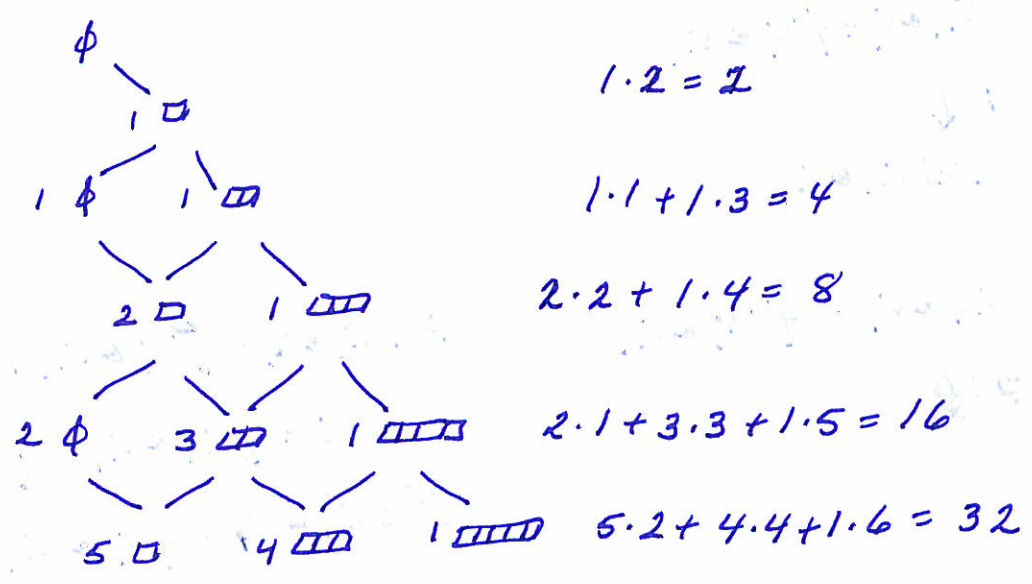 ϕ
1 □ 1·2 = 2
1 ϕ 1 □□ 1·1 + 1·3 = 4
2 □ 1 □□□ 2·2 + 1·4 = 8
2 ϕ 3 □□ 1 □□□□ 2·1 + 3·3 + 1·5 = 16
5 □ 4 □□□ 1 □□□□□ 5·2 + 4·4 + 1·6 = 32